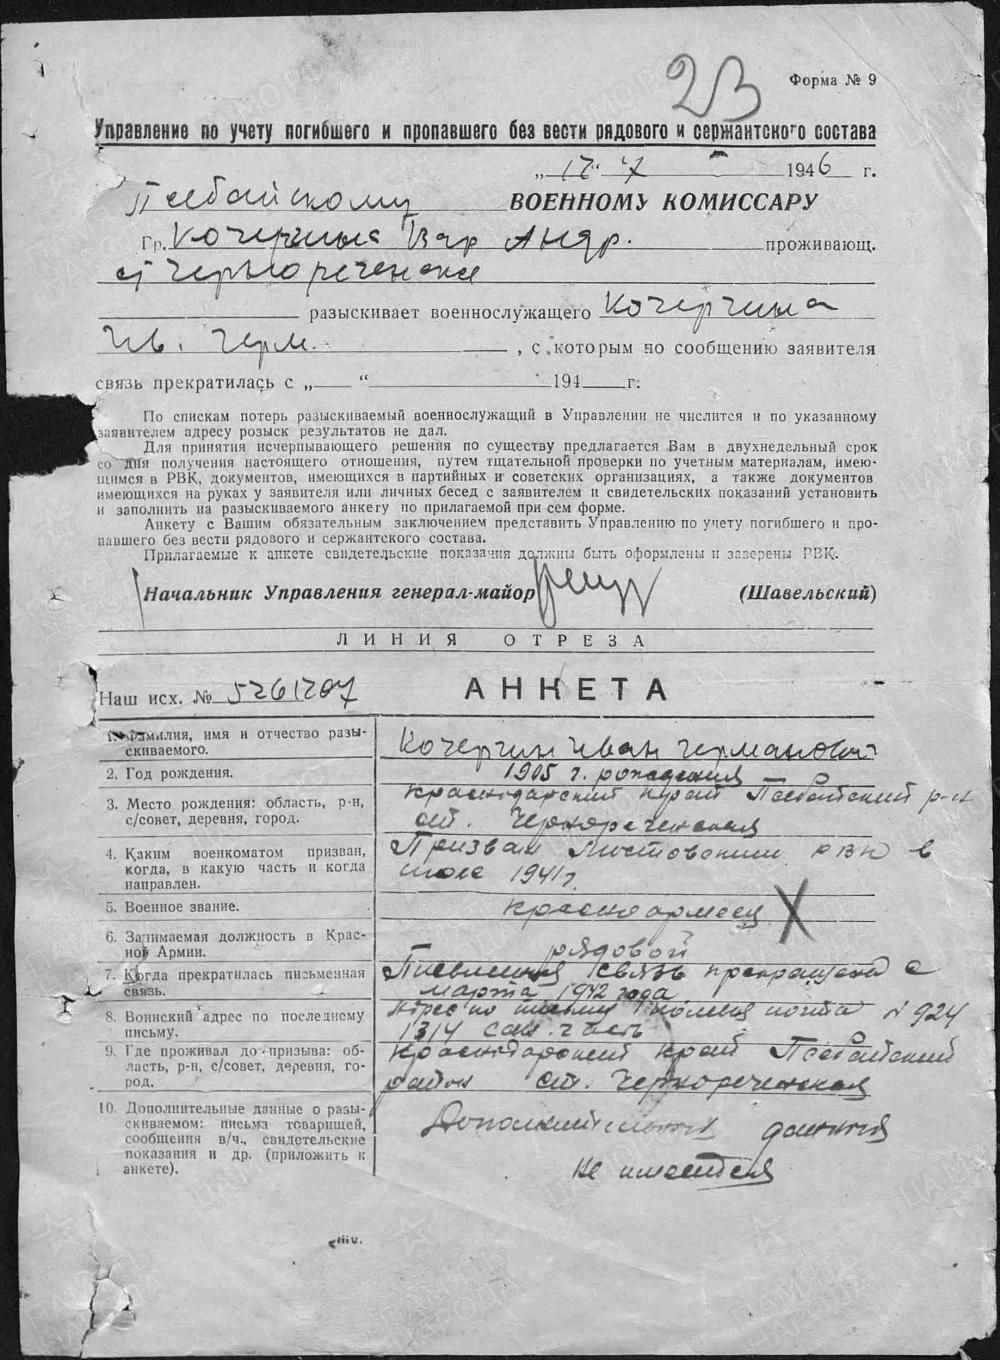 23
Форма № 9
Управление по учету погибшего и пропавшего без вести рядового и сержантского состава
„17“ 7 1946 г.
Псебайскому ВОЕННОМУ КОМИССАРУ
Гр. Кочергина Вар Андр. проживающ.
ст Чернореченская
разыскивает военнослужащего Кочергина
Ив. Герм. , с которым по сообщению заявителя
связь прекратилась с „ “ 194 г.
По спискам потерь разыскиваемый военнослужащий в Управлении не числится и по указанному
заявителем адресу розыск результатов не дал.
Для принятия исчерпывающего решения по существу предлагается Вам в двухнедельный срок
со дня получения настоящего отношения, путем тщательной проверки по учетным материалам, имею-
щимся в РВК, документов, имеющихся в партийных и советских организациях, а также документов
имеющихся на руках у заявителя или личных бесед с заявителем и свидетельских показаний установить
и заполнить на разыскиваемого анкету по прилагаемой при сем форме.
Анкету с Вашим обязательным заключением представить Управлению по учету погибшего и про-
павшего без вести рядового и сержантского состава.
Прилагаемые к анкете свидетельские показания должны быть оформлены и заверены РВК.
Начальник Управления генерал-майор (Шавельский)
ЛИНИЯ ОТРЕЗА
Наш исх. № 5261207 АНКЕТА
1. Фамилия, имя и отчество разы-
скиваемого.
Кочергин Иван Германович
2. Год рождения.
1905 г. рождения
3. Место рождения: область, р-н,
с/совет, деревня, город.
Краснодарский край Псебайский р-н
ст. Чернореченская
4. Каким военкоматом призван,
когда, в какую часть и когда
направлен.
Призван Мостовским РВК в
июле 1941 г.
5. Военное звание.
красноармеец
6. Занимаемая должность в Крас-
ной Армии.
рядовой
7. Когда прекратилась письменная
связь.
Письменная связь прекращена с
марта 1942 года
8. Воинский адрес по последнему
письму.
Адрес по письму полевая почта № 924
1314 сан. часть
9. Где проживал до призыва: об-
ласть, р-н, с/совет, деревня, го-
род.
Краснодарский край Псебайский
район ст. Чернореченская
10. Дополнительные данные о разы-
скиваемом: письма товарищей,
сообщения в/ч., свидетельские
показания и др. (приложить к
анкете).
Дополнительных данных
не имеется